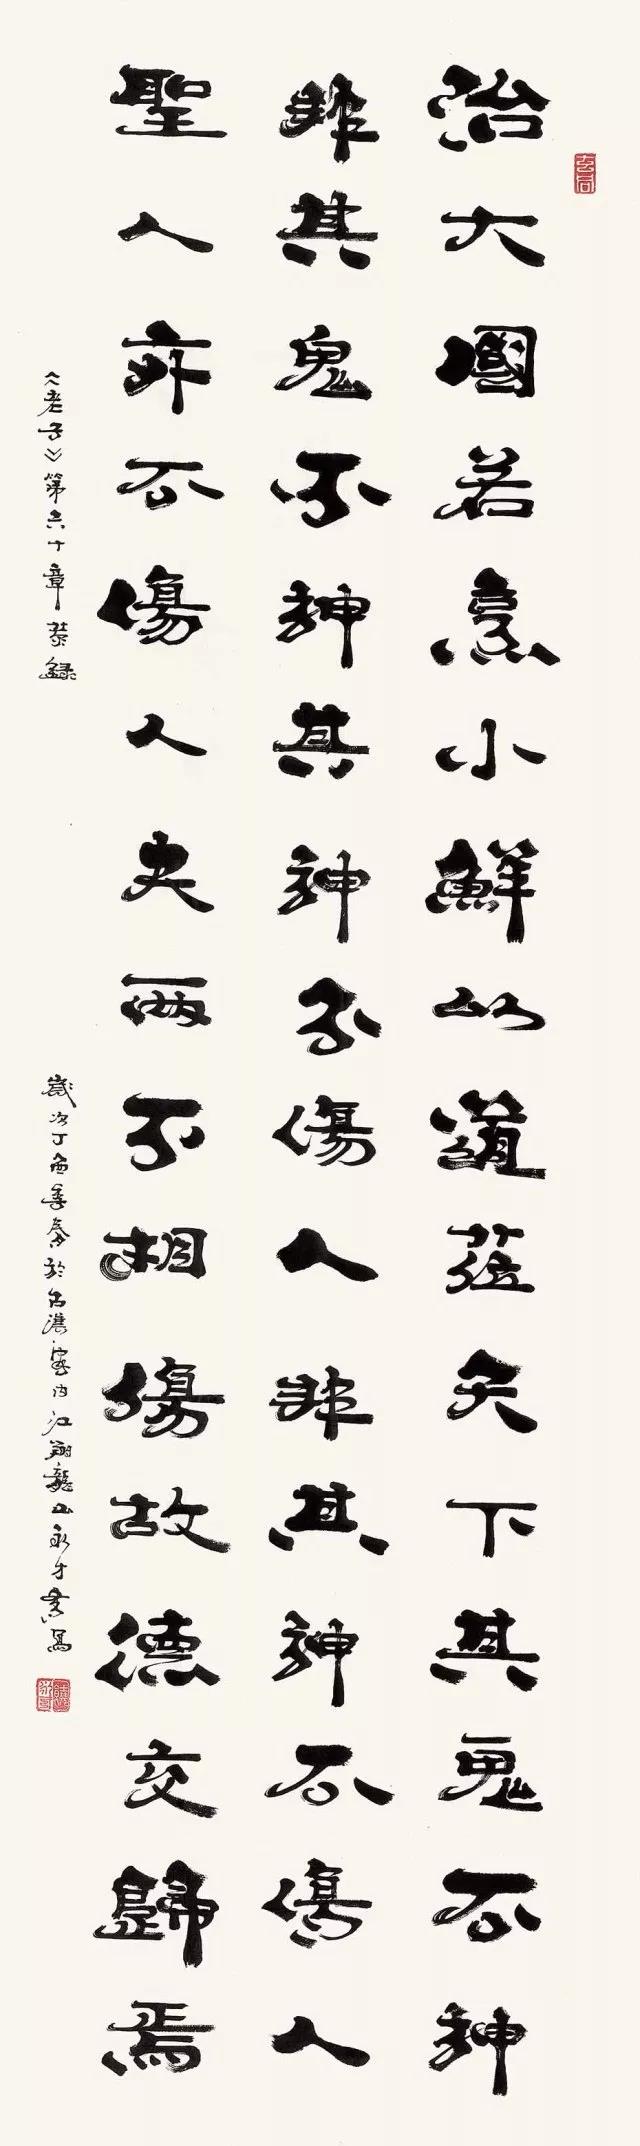 治大國若烹小鮮以道莅天下其鬼不神
非其鬼不神其神不傷人非其神不傷人
聖人亦不傷人夫兩不相傷故德交歸焉
《老子》第六十章恭錄
歲次丁酉季春於台灣